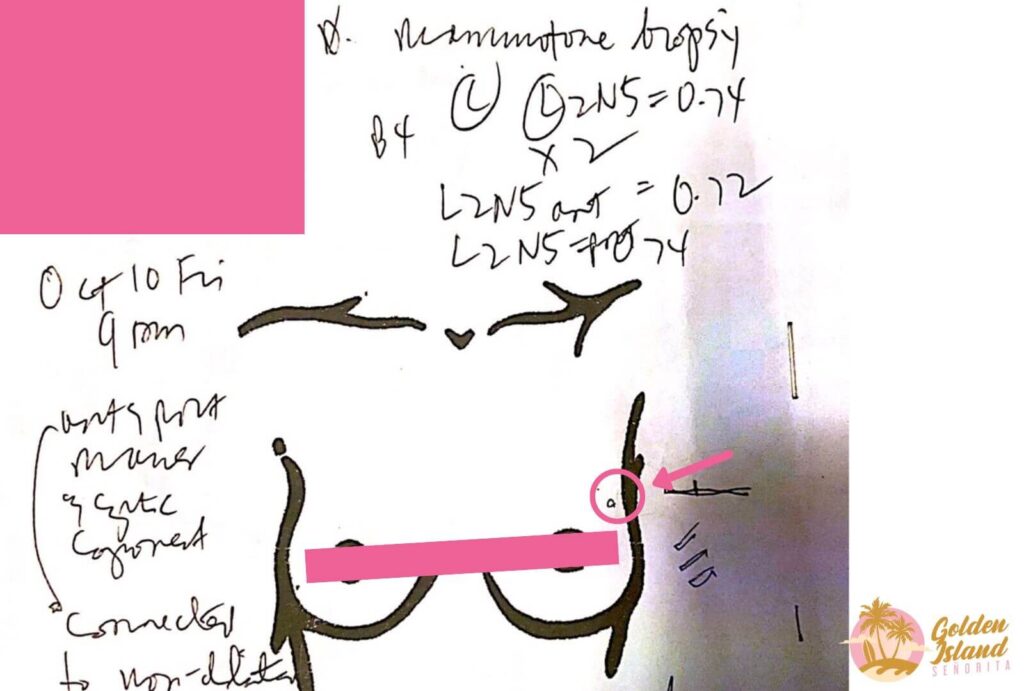 mammotome biopsy
B4 L L2N5 = 0.74
x 2
L2N5 ant = 0.72
L2N5 0.74
Oct 10 Fri
9
ant & post
cystic
component
connected
to non-dilated
Golden
Island
SEÑORITA